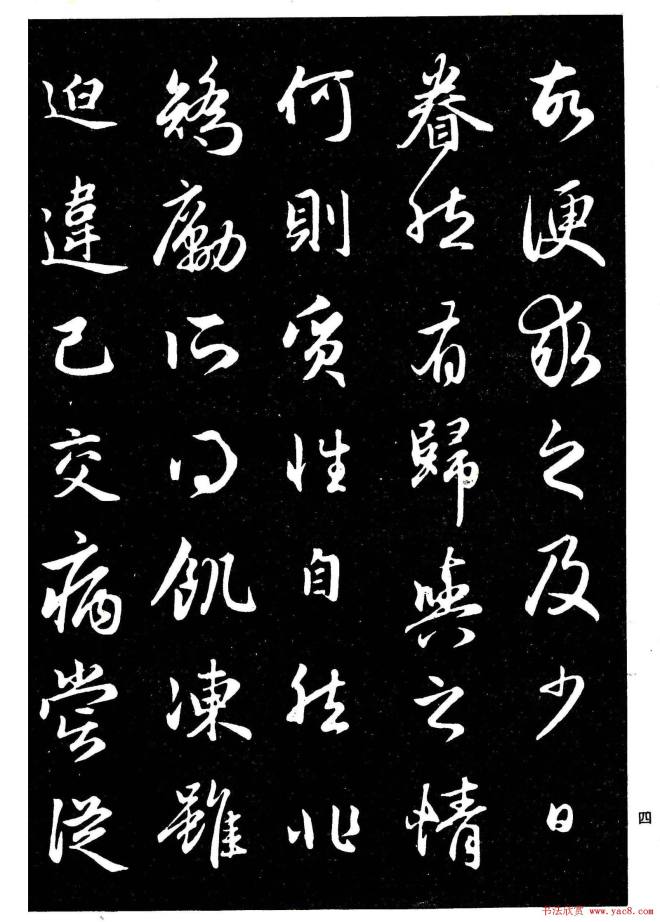 故便求之及少日
眷然有歸與之情
何則質性自然非
矯勵所得飢凍雖
迫違己交病嘗從
四
书法欣赏 www.yac8.com